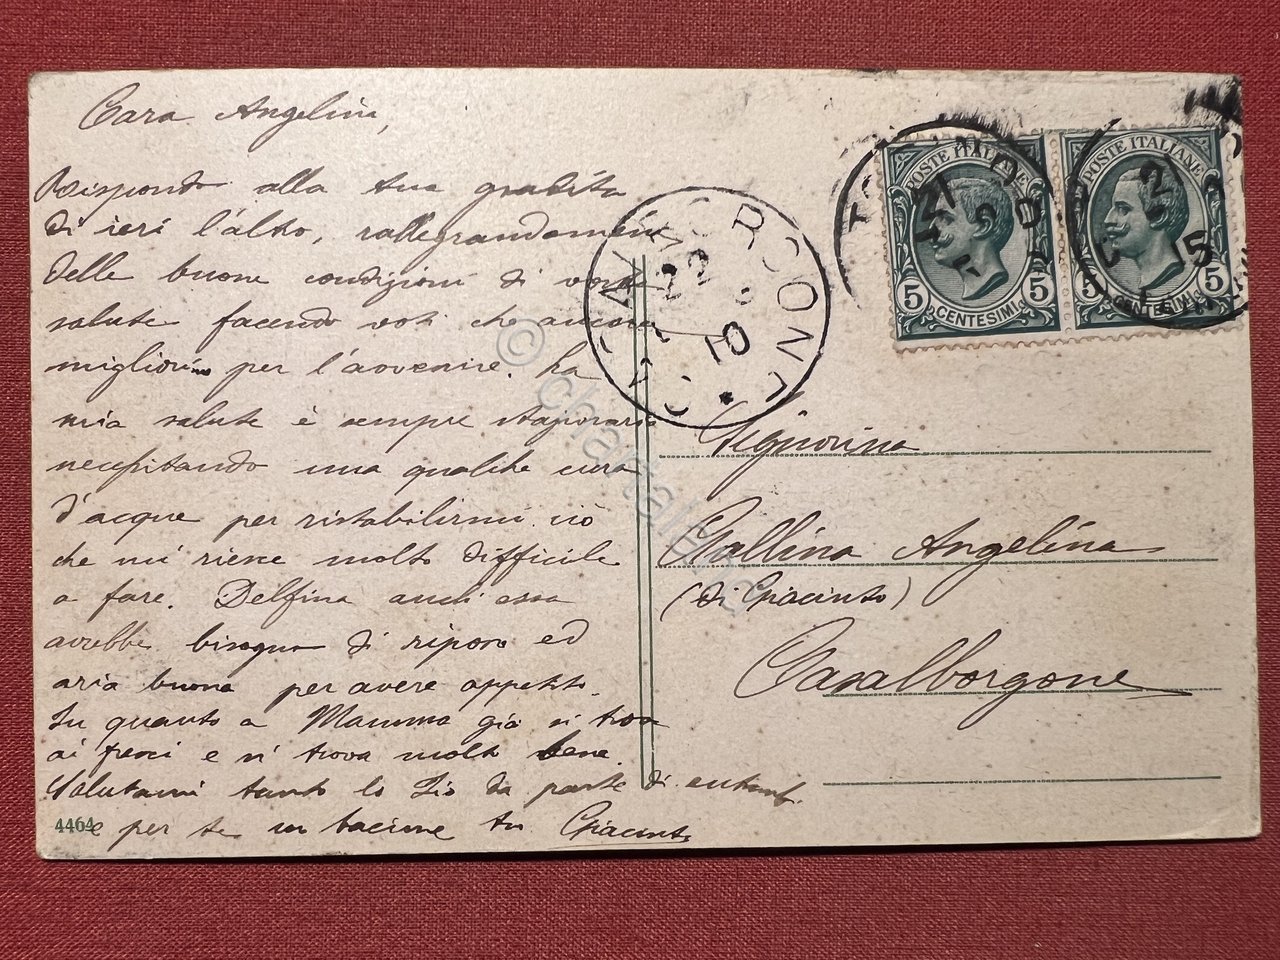 Cara Angelina,
Rispondo alla tua gradita
di ieri l'altro, rallegrandomi
delle buone condizioni di vostra
salute facendo voti che ancora
migliorino per l'avvenire. La
mia salute è sempre stazionaria
necessitando una qualche cura
d'acque per ristabilirmi ciò
che mi riesce molto difficile
a fare. Delfina anch'essa
avrebbe bisogno di riposo ed
aria buona per avere appetito.
In quanto a Mamma già si trova
ai freschi e si trova molto bene.
Salutami tanto lo Zio da parte di entrambi
e per te un bacione tuo Giacinto
4464
CASALBORGONE
22 9 10
POSTE ITALIANE
5 CENTESIMI 5
POSTE ITALIANE
5 CENTESIMI 5
Signorina
Gallina Angelina
(di Giacinto)
Casalborgone
© chartaland